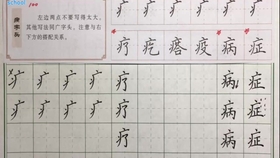 School
左边两点不要写得太大，
其他写法同广字头，注意与右
下方的搭配关系。
病字头
疒 疒 疒 疒 疒 疒
疗 疙 瘩 疫 病 症
疒 疒 疒 疒 疗 病 症
疒 疒 疒 疒 疗 病 症
疗 病 症